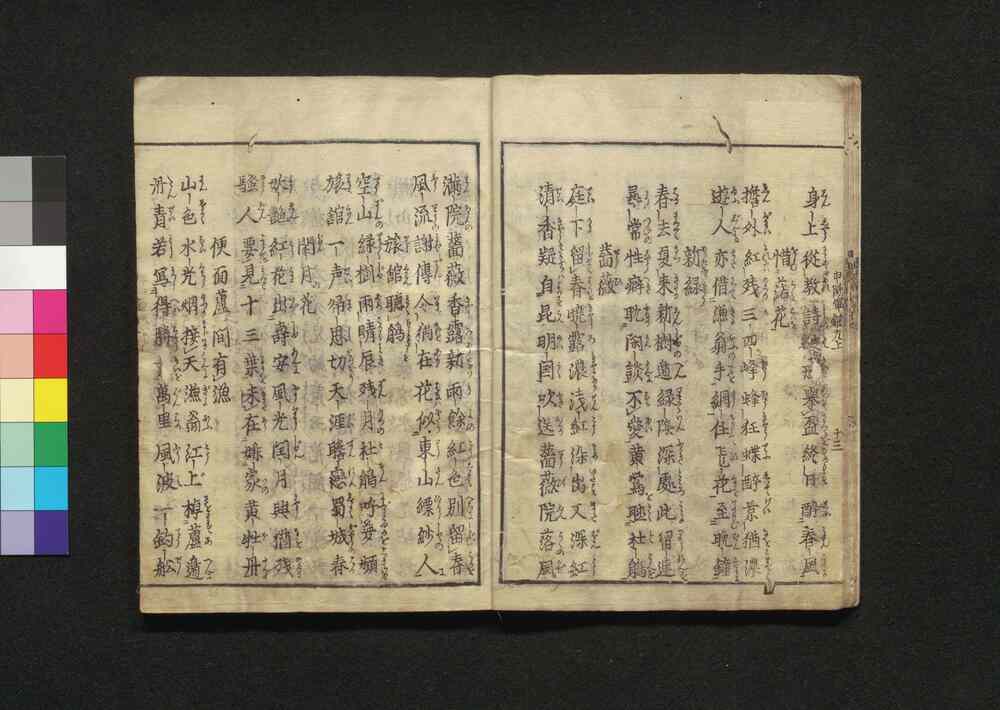 身上從教詩 盈終日醉春風
惜落花
擔外紅残三四峰蜂狂蝶醉景猶濃
遊人亦借漁翁手網住飛花至晩鐘
新緑
春去夏来新樹邊緑陰深處此留連
尋常性癖耽閑談不愛黄鶯聴杜鵑
薔薇
庭下留春曉露濃浅紅染出又深紅
清香疑自昆明国吹送薔薇院落風
満院薔薇香露新雨餘紅色別留春
風流謝傅今猶在花似東山縹緲人
旅舘聴鵑
空山緑樹雨晴辰残月杜鵑呼夢頻
旅舘一声帰思切天涯瞻恋蜀城春
閏月花
吹艶紅花出壽安風光閏月興猶残
騒人要見十三葉未在姚家黄牡丹
便面蘆間有漁
山色水光烟接天漁翁江上棹蘆邊
丹青若寫得 萬里風波一釣船
十三